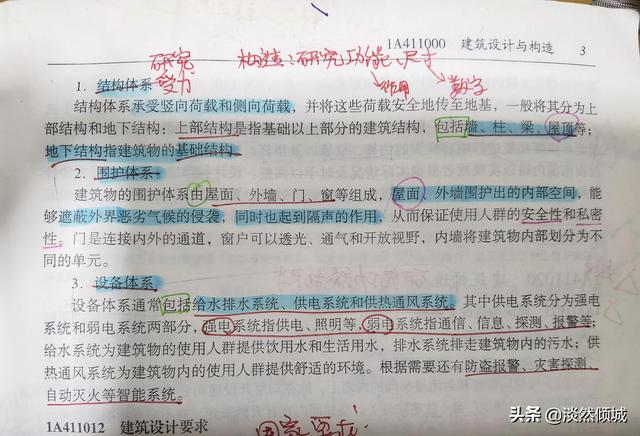 1A411000 建筑设计与构造 3
研究 构造：研究功能、尺寸
1. 结构体系 受力 作用 数字
结构体系承受竖向荷载和侧向荷载，并将这些荷载安全地传至地基，一般将其分为上
部结构和地下结构：上部结构是指基础以上部分的建筑结构，包括墙、柱、梁、屋顶等；
地下结构指建筑物的基础结构。
2. 围护体系
建筑物的围护体系由屋面、外墙、门、窗等组成，屋面、外墙围护出的内部空间，能
够遮蔽外界恶劣气候的侵袭，同时也起到隔声的作用，从而保证使用人群的安全性和私密
性。门是连接内外的通道，窗户可以透光、通气和开放视野，内墙将建筑物内部划分为不
同的单元。
3. 设备体系
设备体系通常包括给水排水系统、供电系统和供热通风系统。其中供电系统分为强电
系统和弱电系统两部分，强电系统指供电、照明等，弱电系统指通信、信息、探测、报警等；
给水系统为建筑物的使用人群提供饮用水和生活用水，排水系统排走建筑物内的污水；供
热通风系统为建筑物内的使用人群提供舒适的环境。根据需要还有防盗报警、灾害探测、
自动灭火等智能系统。
1A411012 建筑设计要求
头条 @淡然倾城